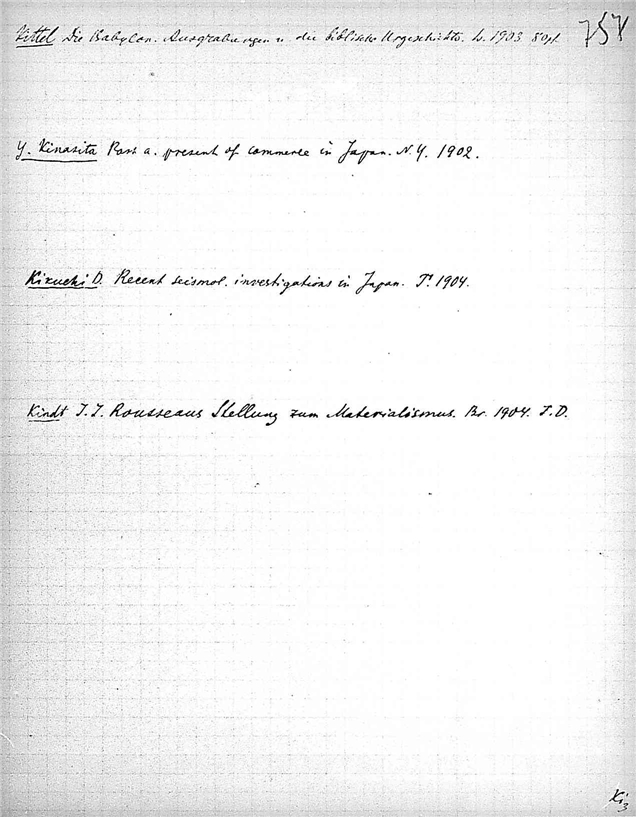 Kittel Die Babylon. Ausgrabungen u. die biblische Urgeschichte. L. 1903 80pf.
754
Y. Kinosita Past a. present of commerce in Japan. N.Y. 1902.
Kikuchi D. Recent seismol. investigations in Japan. T. 1904.
Kindt J.J. Rousseaus Stellung zum Materialismus. Br. 1904. J.D.
Ki
3